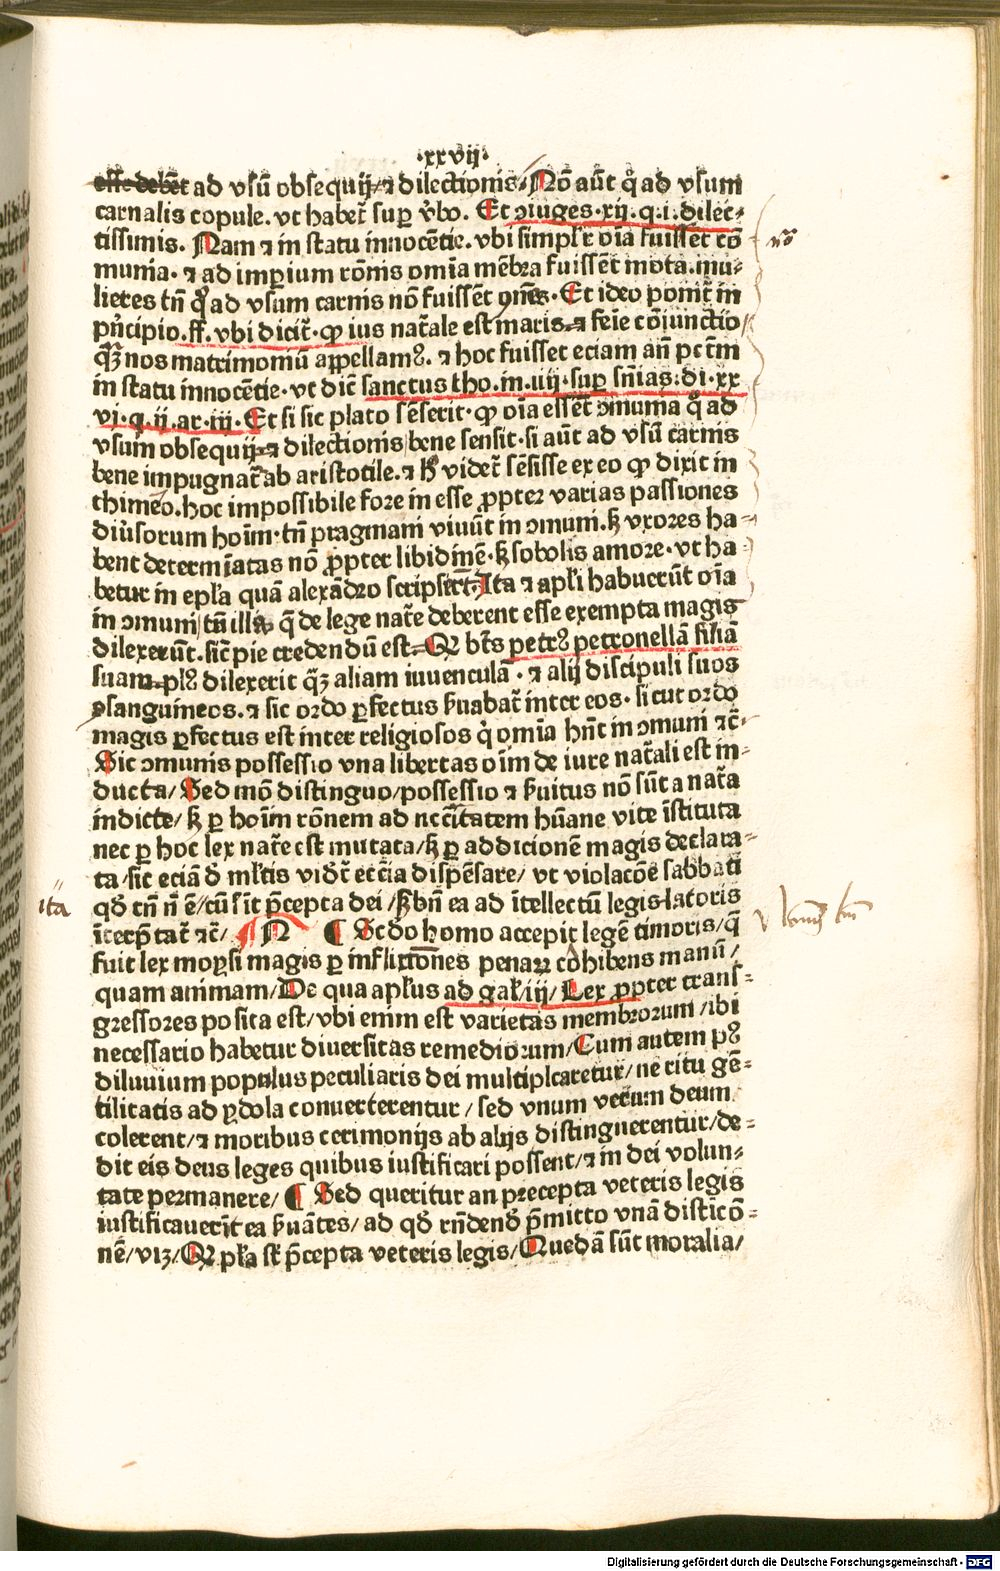 ·xxvij·
esse debēt ad vsū obsequij ⁊ dilectionis/ Nō aūt q̄ ad vsum
carnalis copule. vt habet᷑ sup̲ v̉bo. Et ↄiuges·xij·q·i·dilec⸗
tissimis. Nam ⁊ in statu innocētie. vbi simpl'r oīa fuissēt cō
munia· ⁊ ad imp̲ium rōnis omīa mēbra fuissēt mota.mu⸗
lieres tn̄ q̊ ad vsum carnis nō fuissēt ꝯnēs·Et ideo ponit᷑ in
pn̉cipio.ff. vbi dicit᷑·ꝙ ius nat᷑ale est maris ⁊ feīe cōiunctio
q̄ꝫ nos matrimoniū appellamꝰ. ⁊ hoc fuisset eciam an̄ pctm̄
in statu innocētie·vt dic̄ sanctus tho.in.iiij·sup̲ sn̄ias·di·xx
vi·q·ij·ar·iij·Et si sic plato sēserit·ꝙ oīa essēt ↄmunia q̊ ad
vsum obsequij ⁊ dilectionis bene sensit·si aūt ad vsū carnis
bene impugnat᷑ ab aristotile.⁊ hͦ videt᷑ sēsisse ex eo ꝙ dixit in
thimeo.hoc impossibile fore in esse ꝓpter varias passiones
diủsorum hoīm·tn̄ pragmani viuūt in ↄmuni.sꝫ vxores ha⸗
bent determīatas nō ꝓpter libidinē·sꝫ sobolis amore·vt ha⸗
betur in ep̄la quā alexādro scripsert̄·Ita ⁊ apl'i habuerūt oīa
in ↄmuni tn̄ illa q̄ de lege nat᷑e deberent esse exempta magis
dilexerūt.sic̄ pie credendū est Q bt̄s petrꝰ petronellā filiā
suam plꝰ dilexerit q̄ꝫ aliam iuuenculā·⁊ alij discipuli suos
ꝯsanguineos.⁊ sic ordo p̲fectus s̄uabat᷑ inter eos·sicut ordo
magis p̲fectus est inter religiosos q̉ omīa hn̄t in ↄmuni ⁊c̄·
Sic ↄmunis possessio vna libertas oīm de iure nat᷑ali est in⸗
ducta/ Sed mō distinguo/possessio ⁊ s̄uitus nō sūt a nat᷑a
indicte/ sꝫ p̲ hoīm rōnem ad nccītatem hūane vite īstituta
nec p̲ hoc lex nat᷑e est mutata/sꝫ p̲ addicionē magis declara⸗
ta/sic eciā ī ml'tis vidꝫ eccīa dispēsare/ vt violacōē sabbati
qđ tn̄ n̄ ē/cū sīt p̄cepta dei/sꝫ bn̄ ea ad ītellectū legislatoris
īterp̄tat᷑ ⁊c̄/ N ¶ Scđo homo accepit legē timoris/q̄
fuit lex moysi magis p̲ inflictōnes penaꝝ cōhibens manū/
quam animam/De qua apl'us ad gal'/iij/Lex ꝓpter trans⸗
gressores posita est/vbi enim est varietas membrorum/ibi
necessario habetur diuersitas remediorum/Cum autem pꝰ
diluuium populus peculiaris dei multiplcaretur/ne ritu gē⸗
tilitatis ad ydola conuerterentur/sed vnum verum deum
colerent/⁊ moribus cerimonijs ab alijs distinguerentur/de⸗
dit eis deus leges quibus iustificari possent/⁊ in dei volun⸗
tate permanere/ ¶ Sed queritur an precepta veteris legis
iustificauerīt ea s̄uātes/ad qđ rn̄dendo p̄mitto vnā disticō⸗
nē/viꝫ/Q pl'a st̄ p̄cepta veteris legis/Quedā sūt moralia/